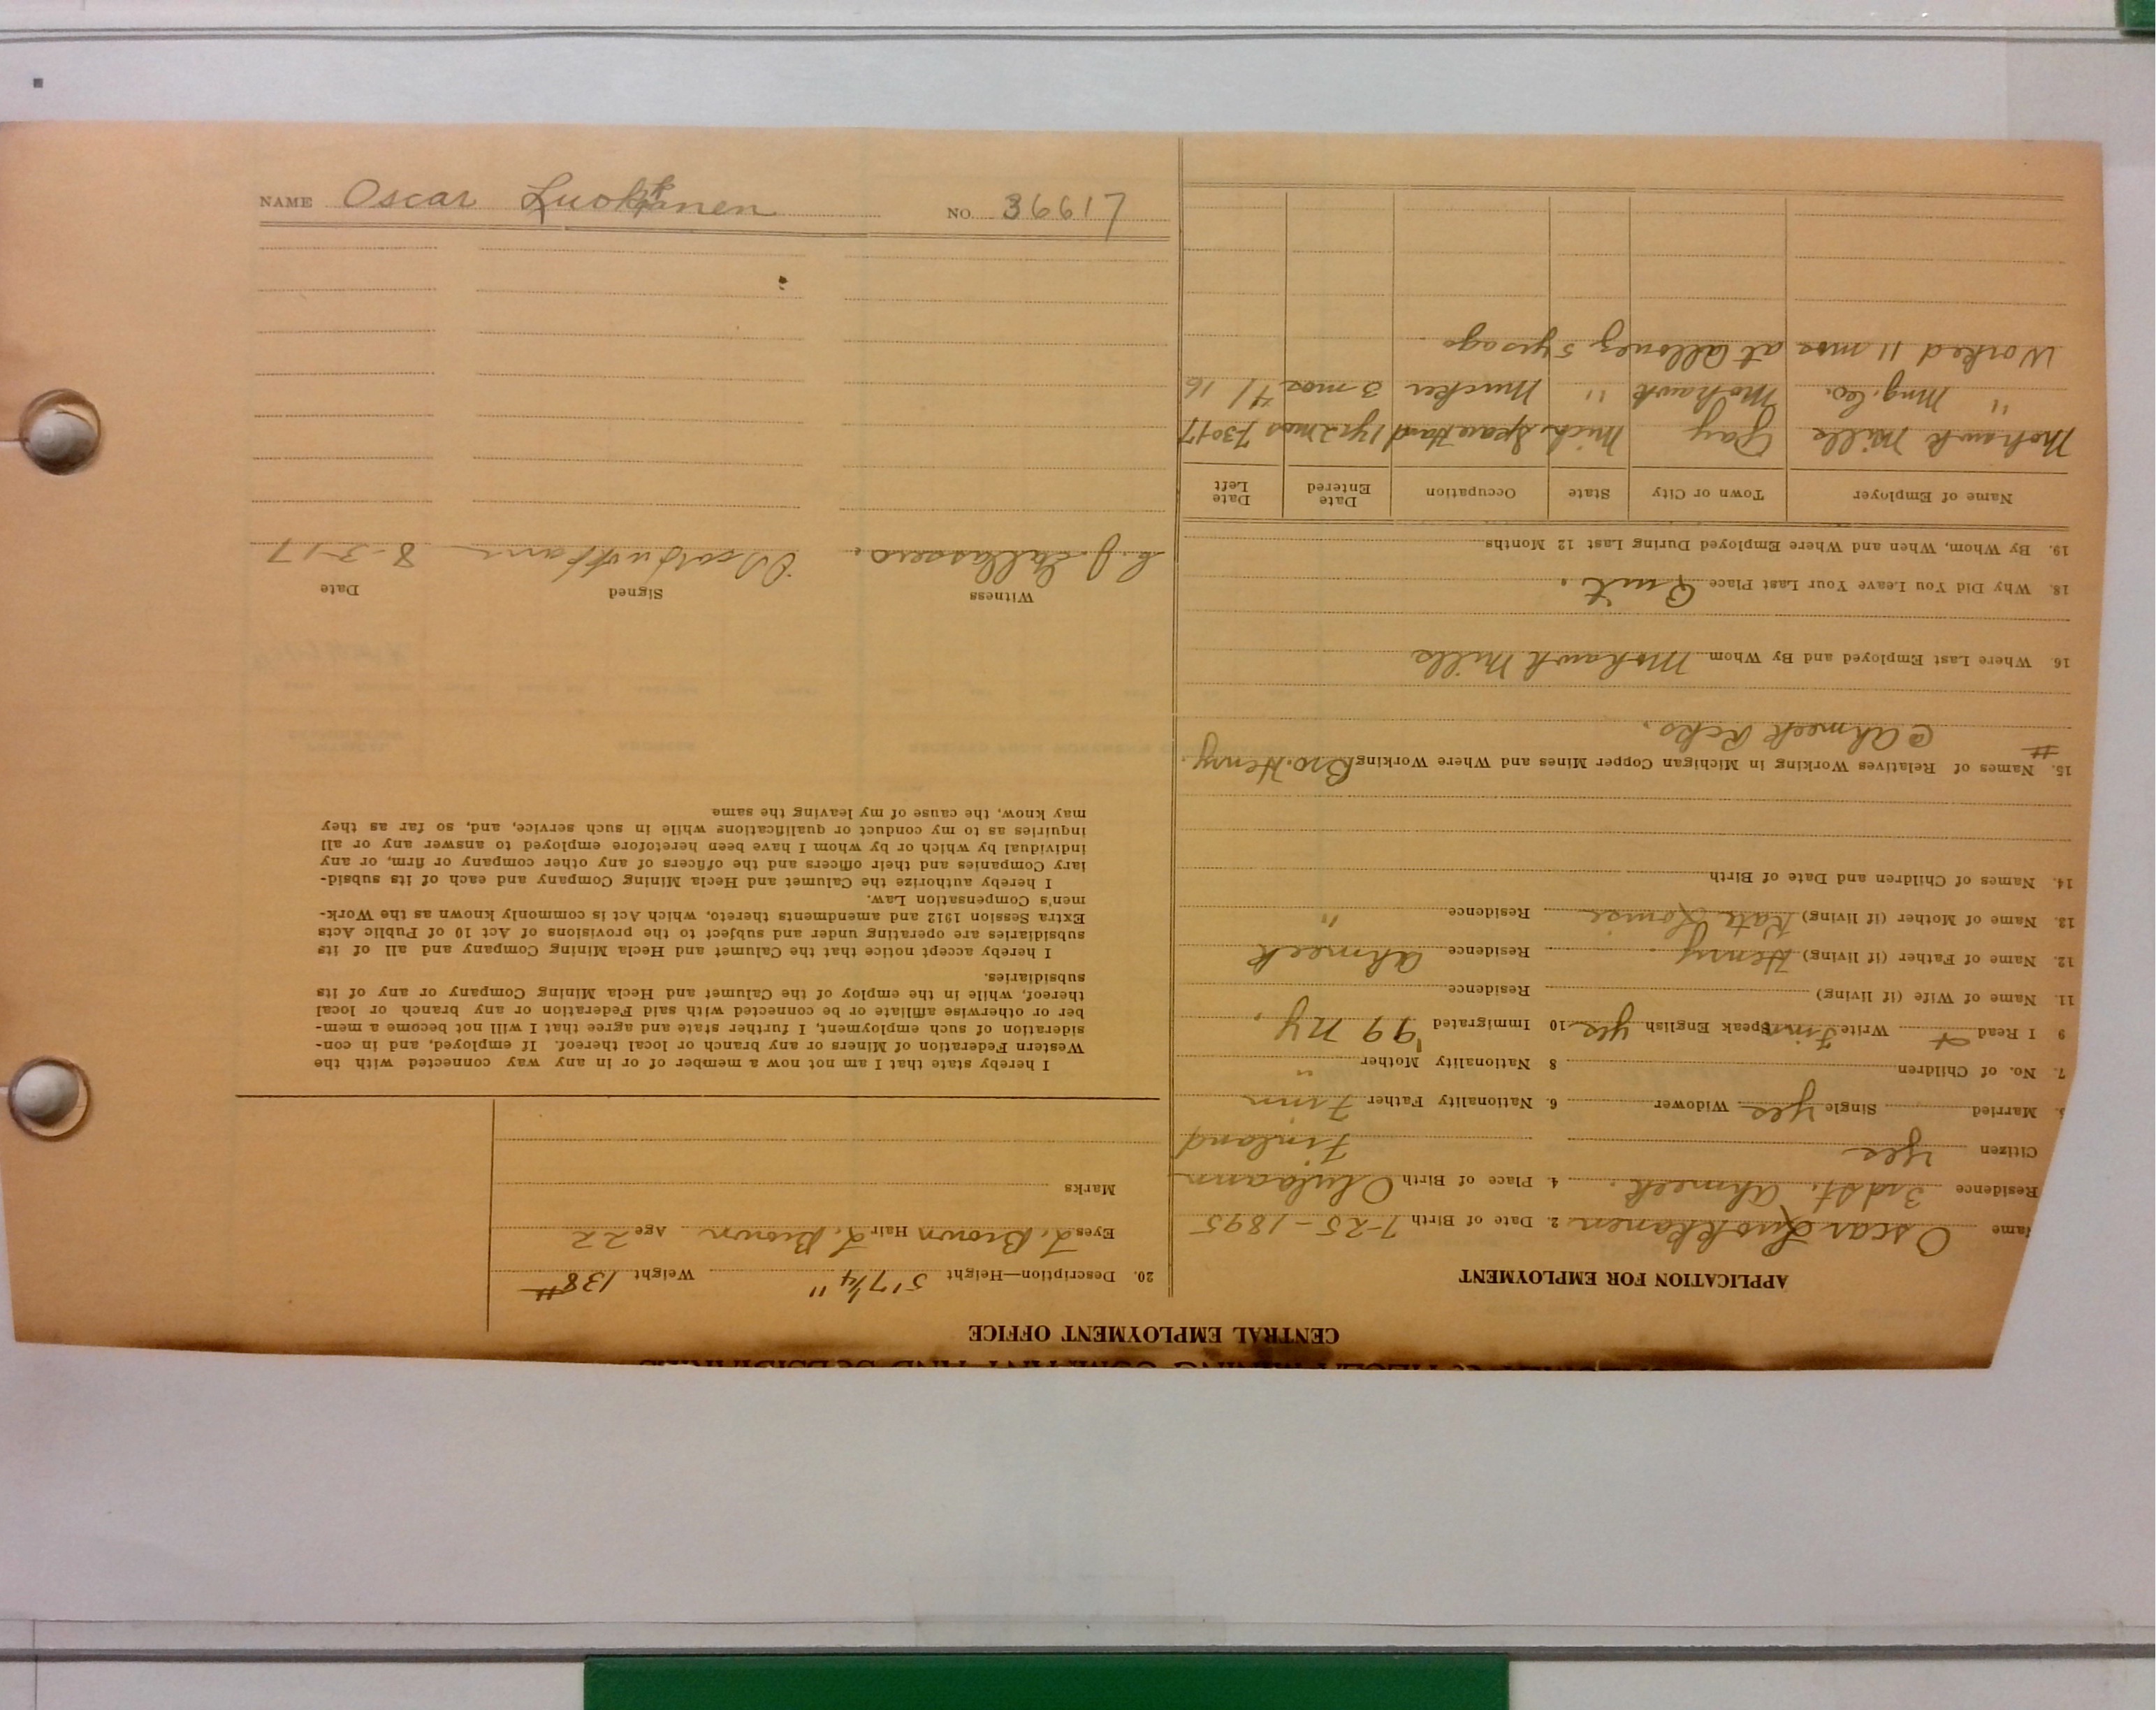 CALUMET & HECLA MINING COMPANY AND SUBSIDIARIES
CENTRAL EMPLOYMENT OFFICE
APPLICATION FOR EMPLOYMENT
ame Oscar Luokkanen 2. Date of Birth 7-25-1895
Residence 3rd St. Ahmeek. 4. Place of Birth
Citizen Yes Finland
Married Single Yes Widower 6. Nationality Father Finn
7. No. of Children 8 Nationality Mother "
9 I Read Write Finn Speak English yes 10 Immigrated '99 NY.
11. Name of Wife (if living) Residence
12. Name of Father (if living) Henry. Residence Ahmeek
13. Name of Mother (if living) Kate Louise Residence "
14. Names of Children and Date of Birth
15. Names of Relatives Working in Michigan Copper Mines and Where Working Bro. Henry.
# @ Ahmeek Rcks.
16 Where Last Employed and By Whom Mohawk Mills
18. Why Did You Leave Your Last Place Quit.
19. By Whom, When and Where Employed During Last 12 Months
Name of Employer Town or City State Occupation Date Entered Date Left
Mohawk Mills Gay Mich. Spare Hand 1yr 2mos 7-30 17
" Mng. Co. Mohawk " Mucker 3 mos 4/16
Worked 11 mos at Allouez 5 yrs ago
20. Description—Height 5'7¼" Weight 138#
Eyes L. Brown Hair L. Brown Age 22
Marks
I hereby state that I am not now a member of or in any way connected with the
Western Federation of Miners or any branch or local thereof. If employed, and in con-
sideration of such employment, I further state and agree that I will not become a mem-
ber or otherwise affiliate or be connected with said Federation or any branch or local
thereof, while in the employ of the Calumet and Hecla Mining Company or any of its
subsidiaries.
I hereby accept notice that the Calumet and Hecla Mining Company and all of its
subsidiaries are operating under and subject to the provisions of Act 10 of Public Acts
Extra Session 1912 and amendments thereto, which Act is commonly known as the Work-
men's Compensation Law.
I hereby authorize the Calumet and Hecla Mining Company and each of its subsid-
iary Companies and their officers and the officers of any other company or firm, or any
individual by which or by whom I have been heretofore employed to answer any or all
inquiries as to my conduct or qualifications while in such service, and, so far as they
may know, the cause of my leaving the same
Date Signed Witness
8-3-17 C. J.
NAME Oscar Luokkanen NO. 36617